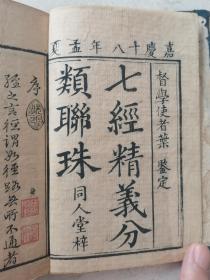 嘉慶十八年孟夏
督學使者葉 鑒定
七經精義分
類聯珠 同人堂梓
序
經之言徑謂如徑路無所不通者